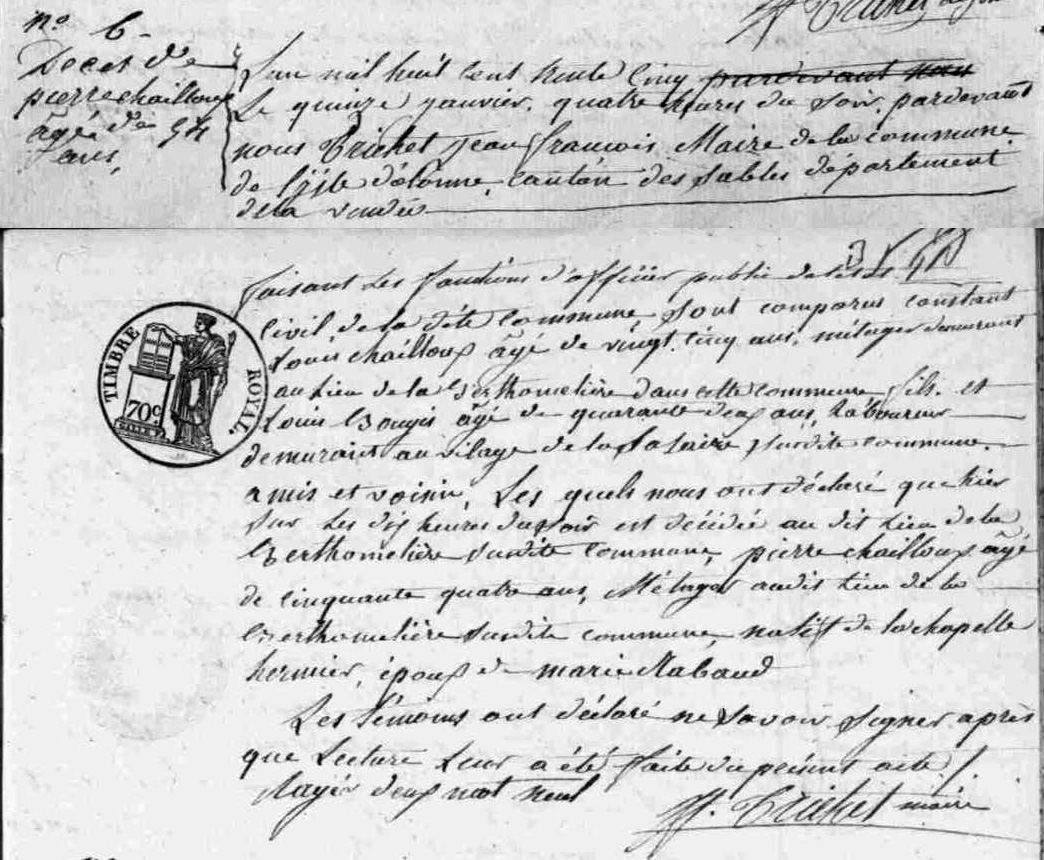 n.º 6-
Decet de
pierre chailloux
âgé de 54
ans,
L'an mil huit cent trente cinq pardevant nous
Le quinze janvier, quatre heures du soir, pardevant
nous Trichet Jean françois Maire de la commune
de l'isle d'olonne, canton des sables département
de la vendée
faisant les fonctions d'officier public de l'état
civil de la dite commune, sont comparus constant
Louis chailloux âgé de vingt cinq ans, métager demeurant
au lieu de la Berthomelière dans cette commune fils. et
Louis Bougis âgé de quarante deux ans, laboureur
demurant au vilage de la susdite commune.
amis et voisin, Les quels nous ont déclaré que hier
sur les dix heures du soir est décidé au dit lieu de la
Berthomelière susdite commune, pierre chailloux âgé
de cinquante quatre ans, Métager audit lieu de la
Berthomelière susdite commune, natif de la chapelle
hermier, époux de marie Rabaud
Les témoins ont déclaré ne savoir signer après
que Lecture leur a été faite du présent acte /
Rayés deux mot nuls
Jf. Trichet maire
TIMBRE ROYAL.
70c